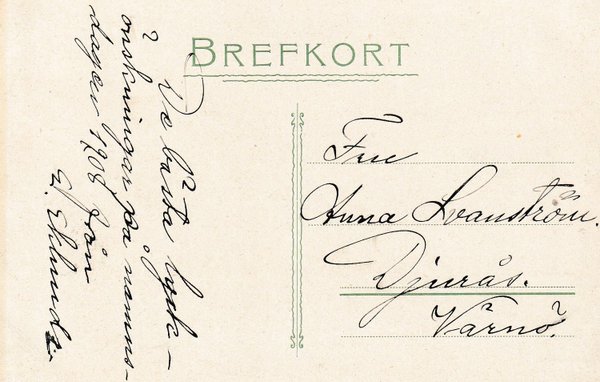 BREFKORT
De bästa lyck-
önskningar på namns-
dagen 1908 från
G. Eklund
Fru
Anna Svanström.
Djurås.
Värnö.